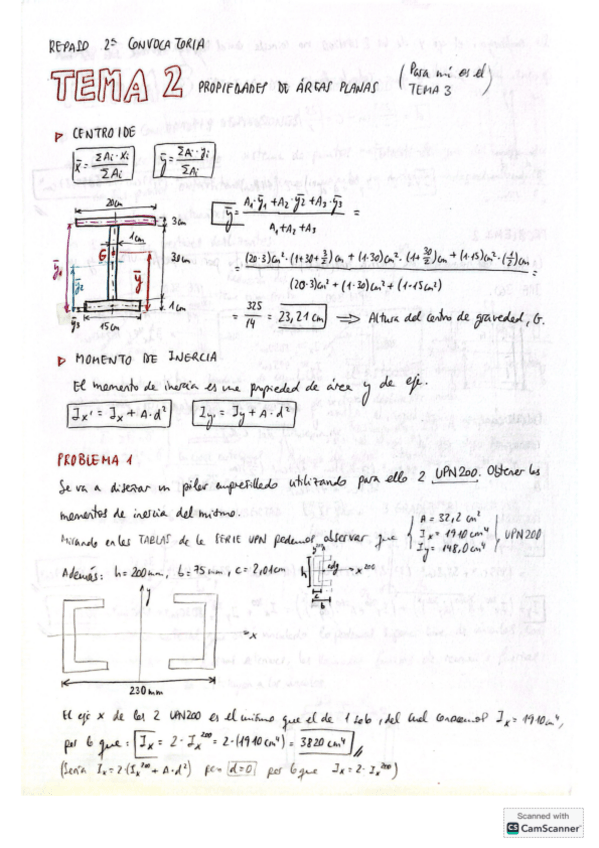 REPASO 2ª CONVOCATORIA
TEMA 2 PROPIEDADES DE ÁREAS PLANAS (Para mí es el TEMA 3)
▷ CENTROIDE
x̄ = ΣAi·xi / ΣAi    ȳ = ΣAi·yi / ΣAi
20cm
3cm
1cm
30cm
G
ȳ1
ȳ2
ȳ
1cm
ȳ3
15cm
ȳ = (A1·ȳ1 + A2·ȳ2 + A3·ȳ3) / (A1 + A2 + A3) =
= ((20·3)cm²·(1+30+3/2)cm + (1·30)cm²·(1+30/2)cm + (1·15)cm²·(1/2)cm) / ((20·3)cm² + (1·30)cm² + (1·15cm²)) =
= 325/14 = 23,21 cm ⟹ Altura del centro de gravedad, G.
▷ MOMENTO DE INERCIA
El momento de inercia es una propiedad de área y de eje.
Ix' = Ix + A·d²    Iy' = Iy + A·d²
PROBLEMA 1
Se va a diseñar un pilar empresillado utilizando para ello 2 UPN200. Obtener los
momentos de inercia del mismo.
Mirando en las TABLAS de la SERIE UPN podemos observar que { A = 32,2 cm²
Ix = 1910 cm⁴
Iy = 148,0 cm⁴ , UPN200
Además: h = 200mm, b = 75mm, c = 2,01cm
h
cdg
x²⁰⁰
c
y
x
230 mm
El eje x de los 2 UPN200 es el mismo que el de 1 solo, del cual conocemos Ix = 1910cm⁴,
por lo que: Ix = 2·Ix²⁰⁰ = 2·(1910cm⁴) = 3820 cm⁴
(Sería Ix = 2·(Ix²⁰⁰ + A·d²) pero d=0 por lo que Ix = 2·Ix²⁰⁰)
Scanned with
CS CamScanner